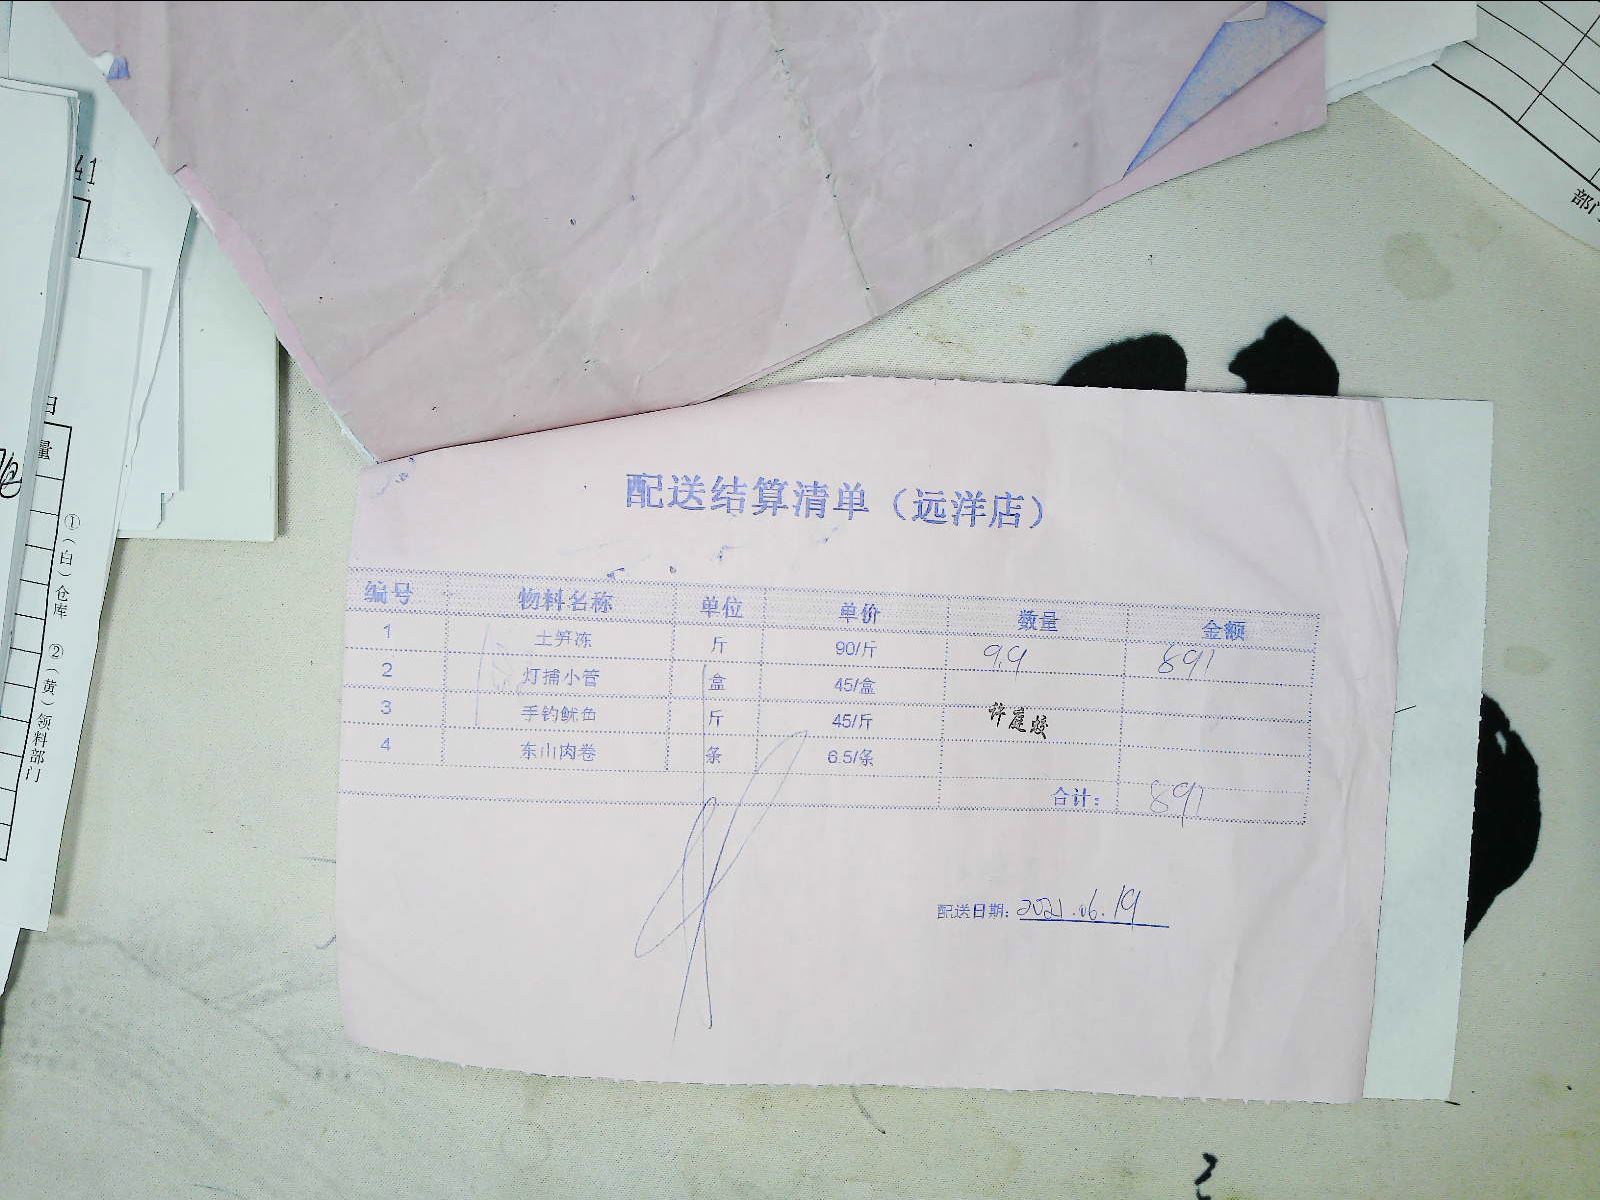 配送结算清单（远洋店）
编号 物料名称 单位 单价 数量 金额
1 土笋冻 斤 90/斤 9.9 891
2 灯捕小管 盒 45/盒
3 手钓鱿鱼 斤 45/斤 许庭蛟
4 东山肉卷 条 6.5/条
合计： 891
配送日期：2021.06.19
41
日
量
①（白）仓库 ②（黄）领料部门
部门